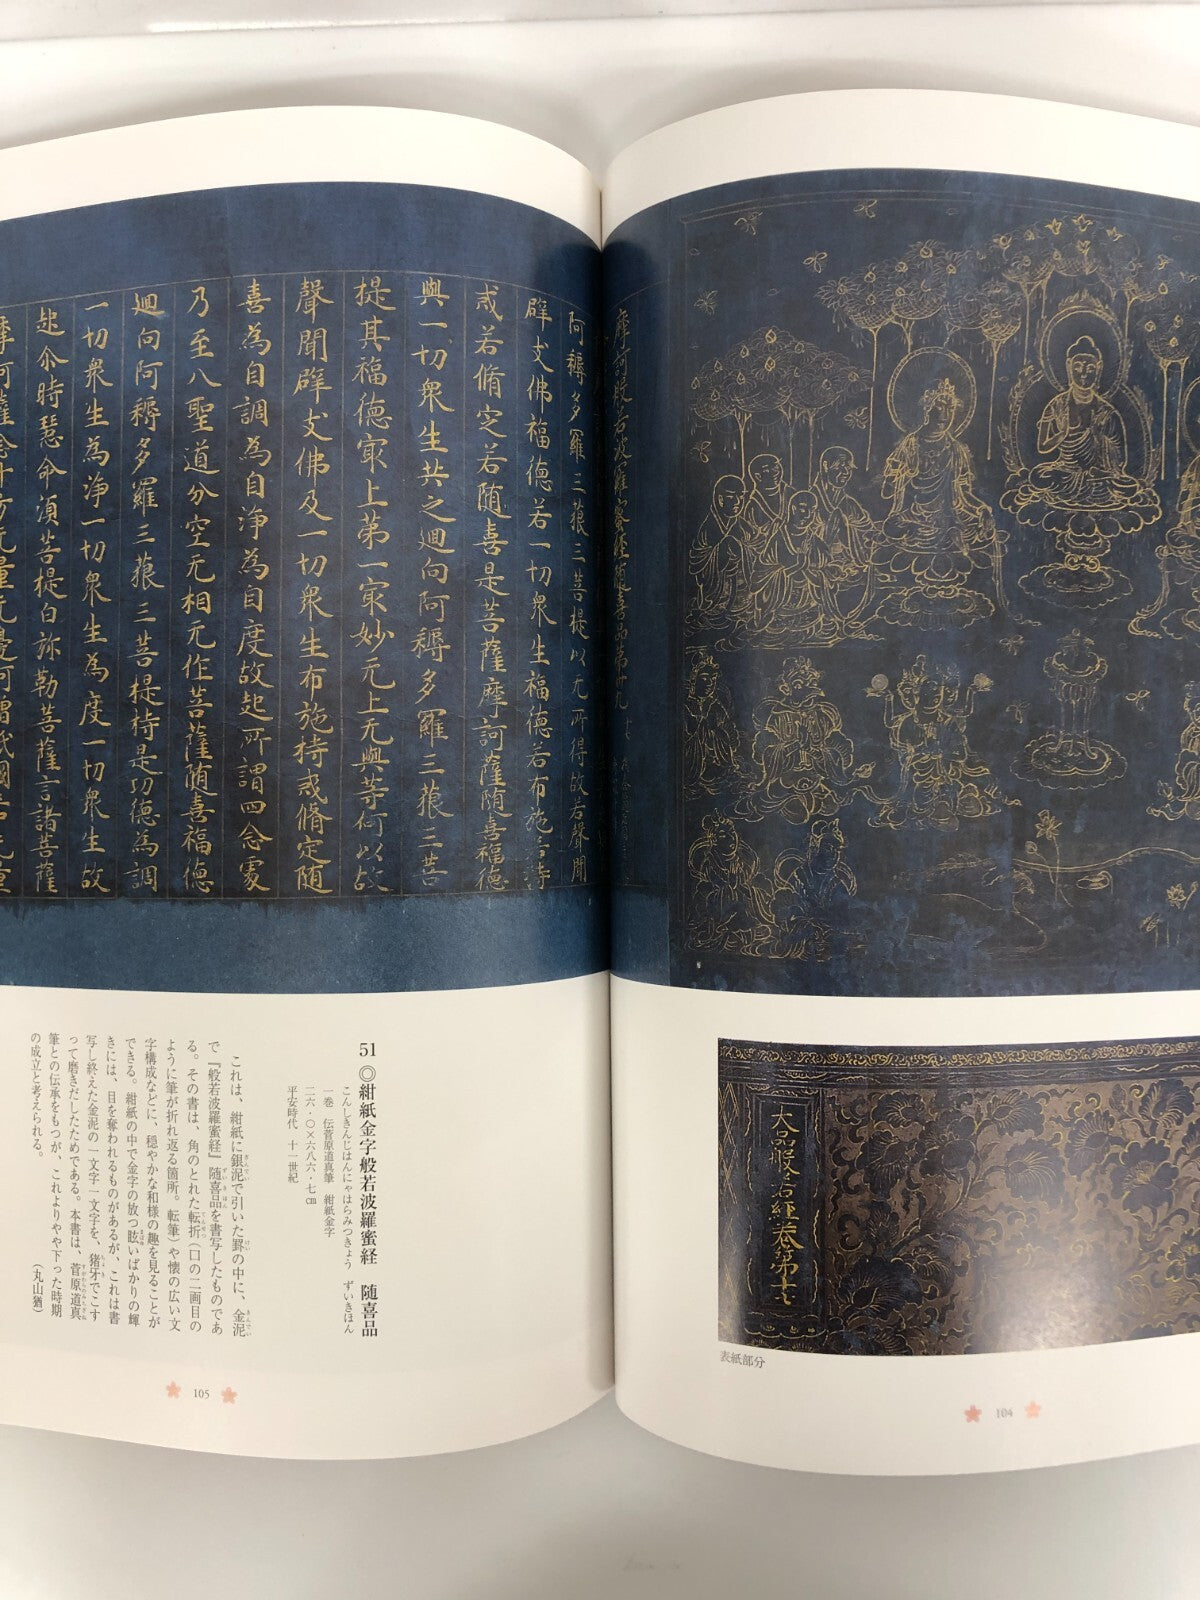 摩訶般若波羅蜜経随喜品第卅九
阿耨多羅三藐三菩提以无所得故若聲聞
辟支佛福德若一切衆生福德若布施若持
戒若脩定若随喜是菩薩摩訶薩随喜福德
與一切衆生共之廻向阿耨多羅三藐三菩
提其福德冣上第一冣妙无上无與等何以故
聲聞辟支佛及一切衆生布施持戒脩定随
喜為自調為自淨為自度故起所謂四念處
乃至八聖道分空无相无作菩薩随喜福德
廻向阿耨多羅三藐三菩提持是功德為調
一切衆生為淨一切衆生為度一切衆生故
起尒時慧命湏菩提白弥勒菩薩言諸菩薩
大品般若經卷第十七
表紙部分
104
51◎紺紙金字般若波羅蜜経　随喜品
こんしきんじはんにゃはらみつきょう　ずいきほん
一巻　伝菅原道真筆　紺紙金字
二六・〇×六八六・七㎝
平安時代　十一世紀
これは、紺紙に銀泥で引いた罫の中に、金泥
で『般若波羅蜜経』随喜品を書写したものであ
る。その書は、角のとれた転折（口の二画目の
ように筆が折れ返る箇所。転筆）や懐の広い文
字構成などに、穏やかな和様の趣を見ることが
できる。紺紙の中で金字の放つ眩いばかりの輝
きには、目を奪われるものがあるが、これは書
写し終えた金泥の一文字一文字を、猪牙でこす
って磨きだしたためである。本書は、菅原道真
筆との伝承をもつが、これよりやや下った時期
の成立と考えられる。
（丸山猶）
105